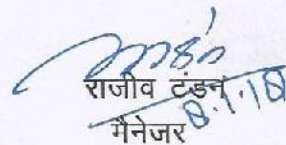 राजीव टंडन
8.1.18
मैनेजर